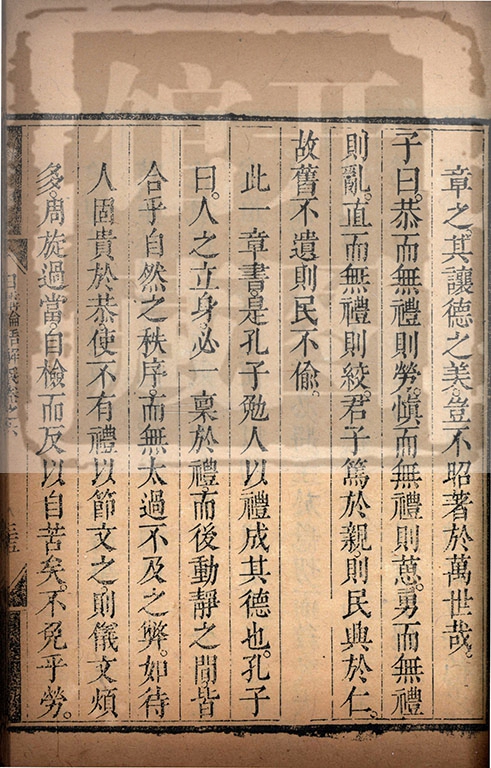 章之其讓德之美豈不昭著於萬世哉。
子曰恭而無禮則勞。愼而無禮則葸。勇而無禮
則亂。直而無禮則絞。君子篤於親。則民興於仁。
故舊不遺則民不偷。
此一章書是孔子勉人以禮成其德也。孔子
曰。人之立身。必一稟於禮。而後動靜之間。皆
合乎自然之秩序。而無太過不及之弊。如待
人固貴於恭。使不有禮以節文之。則儀文煩
多。周旋過當。自檢而反以自苦矣。不免乎勞。
日講論語解義卷之六